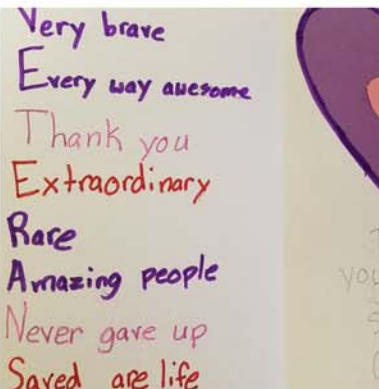 Very brave
Every way awesome
Thank you
Extraordinary
Rare
Amazing people
Never gave up
Saved are life
you